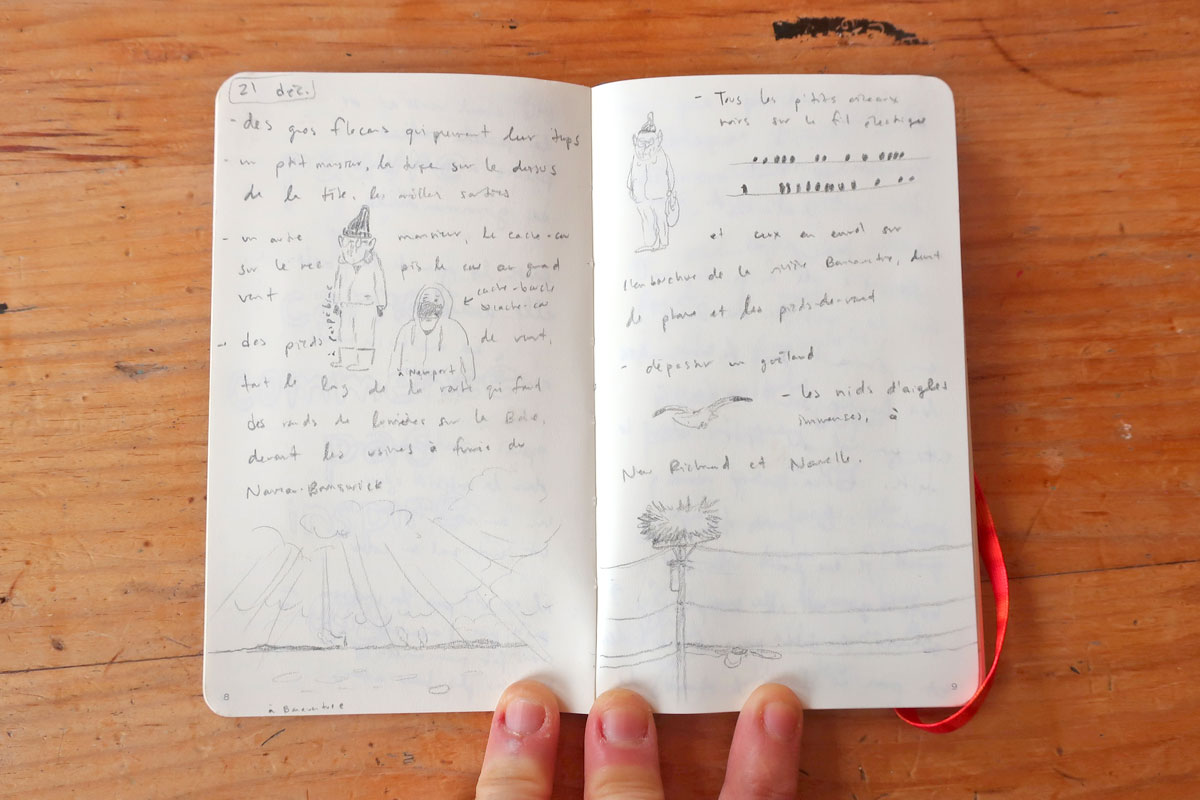 21 déc.
- des gros flocons qui prennent leur temps
- un p'tit monsieur, la tuque sur le dessus
de la tête, les oreilles sorties
- un autre monsieur, le cache-cou
sur le nez pis le cou au grand
vent
cache-bouche
cache-cou
à Paspébiac
à Newport
- des pieds de vent,
tout le long de la route qui font
des ronds de lumière sur la Baie,
devant les usines à fumée du
Nouveau-Brunswick
8
à Bonaventure
- Tous les p'tits oiseaux
noirs sur le fil électrique
et ceux en envol sur
l'embouchure de la rivière Bonaventure, dont
le phare et les pieds-de-vent
- dépasser un goéland
- les nids d'aigles
immenses, à
New Richmond et Nouvelle.
9